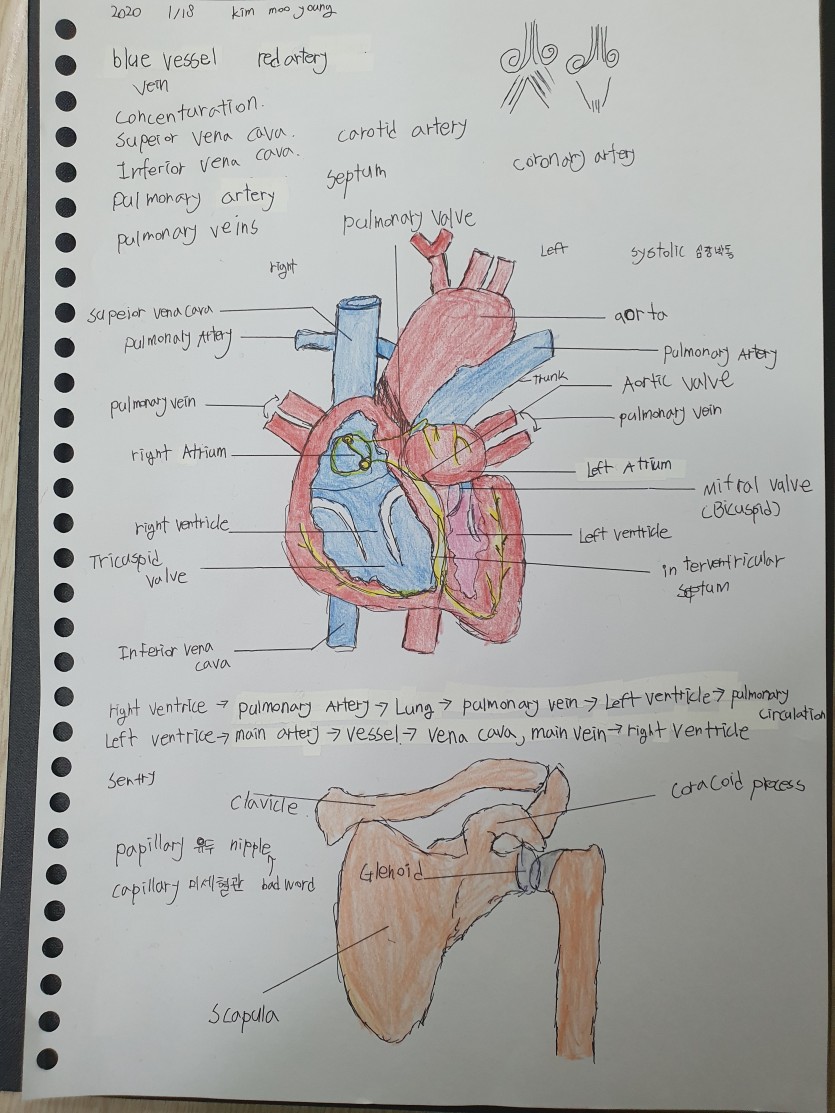 2020 1/18 kim moo young
blue vessel red artery
vein
concenturation.
supeior vena cava. carotid artery
Inferior vena cava. coronary artery
pulmonary artery septum
pulmonary veins pulmonary valve
right Left systolic 심장박동
supeior vena cava aorta
pulmonary Artery pulmonary Artery
trunk Aortic valve
pulmonary vein pulmonary vein
right Atrium Left Atrium
mitral valve
(Bicuspid)
right ventricle Left ventricle
Tricuspid
valve
interventricular
septum
Inferior vena
cava
right ventrice → pulmonary Artery → Lung → pulmonary vein → Left ventricle → pulmonary
circulation
Left ventrice → main artery → vessel → vena cava, main vein → right ventricle
sentry
clavicle coracoid process
papillary 유두 nipple
Glenoid
capillary 미세혈관 bad word
scapula